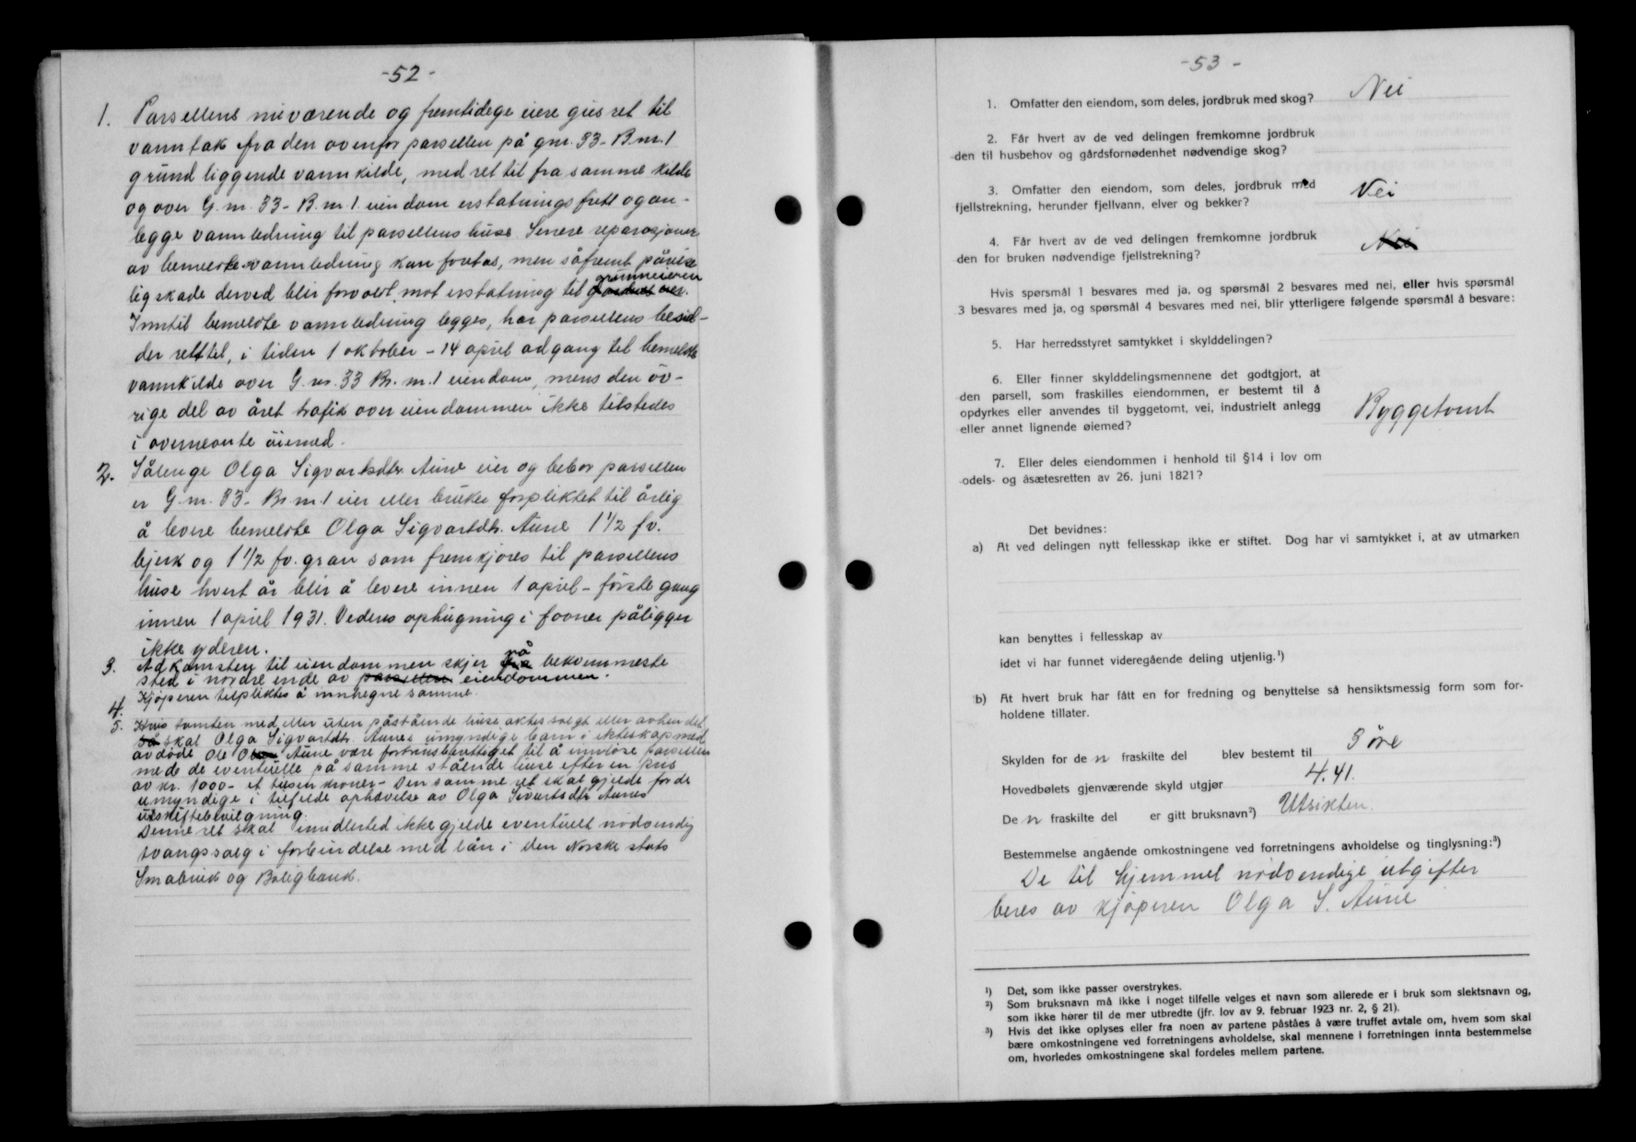 -52-
1. Parsellens nuværende og fremtidige eiere gies ret til
vanntak fra den ovenfor parsellen på gnr. 33- B.nr. 1
grund liggende vannkilde, med ret til fra samme kilde
og over G.nr. 33- B.nr. 1. eiendom erstatningsfritt og an-
legge vannledning til parsellens huse. Senere reparasjoner
av bemeldte vannledning kan foretas, men såfremt påvise
lig skade derved blir forvoldt mot erstatning til grunneieren
Inntil bemeldte vannledning legges, har parsellens besid-
der rett til, i tiden 1 oktober - 14 april adgang til bemeldte
vannkilde over G.nr. 33 Br. nr. 1 eiendom, mens den öv-
rige del av året trafik over eiendommen ikke tilstedes
i ovennevnte öiemed.
2. Sålenge Olga Sigvartsdtr. Aune eier og bebor parsellen
er G.nr. 33- Br.nr. 1 eier eller bruker forpliktet til årlig
å levere bemeldte Olga Sigvartdtr. Aune 1 1/2 fv.
bjerk og 1 1/2 fv. gran som fremkjøres til parsellens
huse hvert år blir å levere innen 1 april - første gang
innen 1 april 1931. Vedens ophugning i favner påligger
ikke yderen.
3. Adkomsten til eiendommen skjer på bekvemmeste
sted i nordre ende av parsellen eiendommen.
4. Kjøperen tilpliktes å innhegne samme.
5. Hvis tomten med eller uten påstående huse aktes solgt eller avhendet
så skal Olga Sigvartdtr. Aunes umyndige barn i ekteskap med
avdöde Ole Aune være fortrinsberettiget til å innlöse parsellen
med de eventuelle på samme stående huse efter en pris
av kr. 1000- et tusen kroner- Den samme ret skal gjelde for de
umyndige i tilfelde ophævelse av Olga Sivertsdtr Aunes
uskiftebevilgning.
Denne ret skal imidlertid ikke gjelde eventuelt nödvendig
tvangssalg i forbindelse med lån i Den Norske stats
Småbruk og Boligbank.
-53-
1. Omfatter den eiendom, som deles, jordbruk med skog? Nei
2. Får hvert av de ved delingen fremkomne jordbruk
den til husbehov og gårdsfornødenhet nødvendige skog?
3. Omfatter den eiendom, som deles, jordbruk med
fjellstrekning, herunder fjellvann, elver og bekker? Nei
4. Får hvert av de ved delingen fremkomne jordbruk
den for bruken nødvendige fjellstrekning? Nei
Hvis spørsmål 1 besvares med ja, og spørsmål 2 besvares med nei, eller hvis spørsmål
3 besvares med ja, og spørsmål 4 besvares med nei, blir ytterligere følgende spørsmål å besvare:
5. Har herredsstyret samtykket i skylddelingen?
6. Eller finner skylddelingsmennene det godtgjort, at
den parsell, som fraskilles eiendommen, er bestemt til å
opdyrkes eller anvendes til byggetomt, vei, industrielt anlegg
eller annet lignende øiemed? Byggetomt
7. Eller deles eiendommen i henhold til §14 i lov om
odels- og åsætesretten av 26. juni 1821?
Det bevidnes:
a) At ved delingen nytt fellesskap ikke er stiftet. Dog har vi samtykket i, at av utmarken
kan benyttes i fellesskap av
idet vi har funnet videregående deling utjenlig.¹)
b) At hvert bruk har fått en for fredning og benyttelse så hensiktsmessig form som for-
holdene tillater.
Skylden for den fraskilte del blev bestemt til 3 øre
Hovedbølets gjenværende skyld utgjør 4.41.
Den fraskilte del er gitt bruksnavn²) Utsikten.
Bestemmelse angående omkostningene ved forretningens avholdelse og tinglysning:³)
De til hjemmel nödvendige utgifter
beres av kjøperen Olga S. Aune
¹) Det, som ikke passer overstrykes.
²) Som bruksnavn må ikke i noget tilfelle velges et navn som allerede er i bruk som slektsnavn og,
som ikke hører til de mer utbredte (jfr. lov av 9. februar 1923 nr. 2, § 21).
³) Hvis det ikke oplyses eller fra noen av partene påståes å være truffet avtale om, hvem som skal
bære omkostningene ved forretningens avholdelse, skal mennene i forretningen innta bestemmelse
om, hvorledes omkostningene skal fordeles mellem partene.